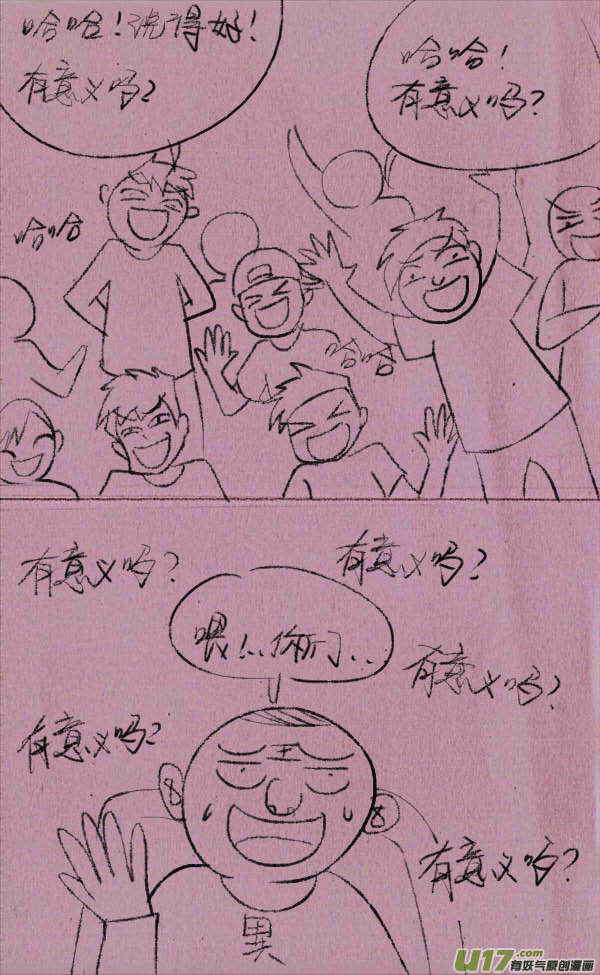 哈哈！说得好！
有意义吗？
哈哈！
有意义吗？
哈哈
哈哈
有意义吗？
有意义吗？
喂！..你们...
有意义吗？
有意义吗？
王
8
8
有意义吗？
異
U17.com
有妖气原创漫画